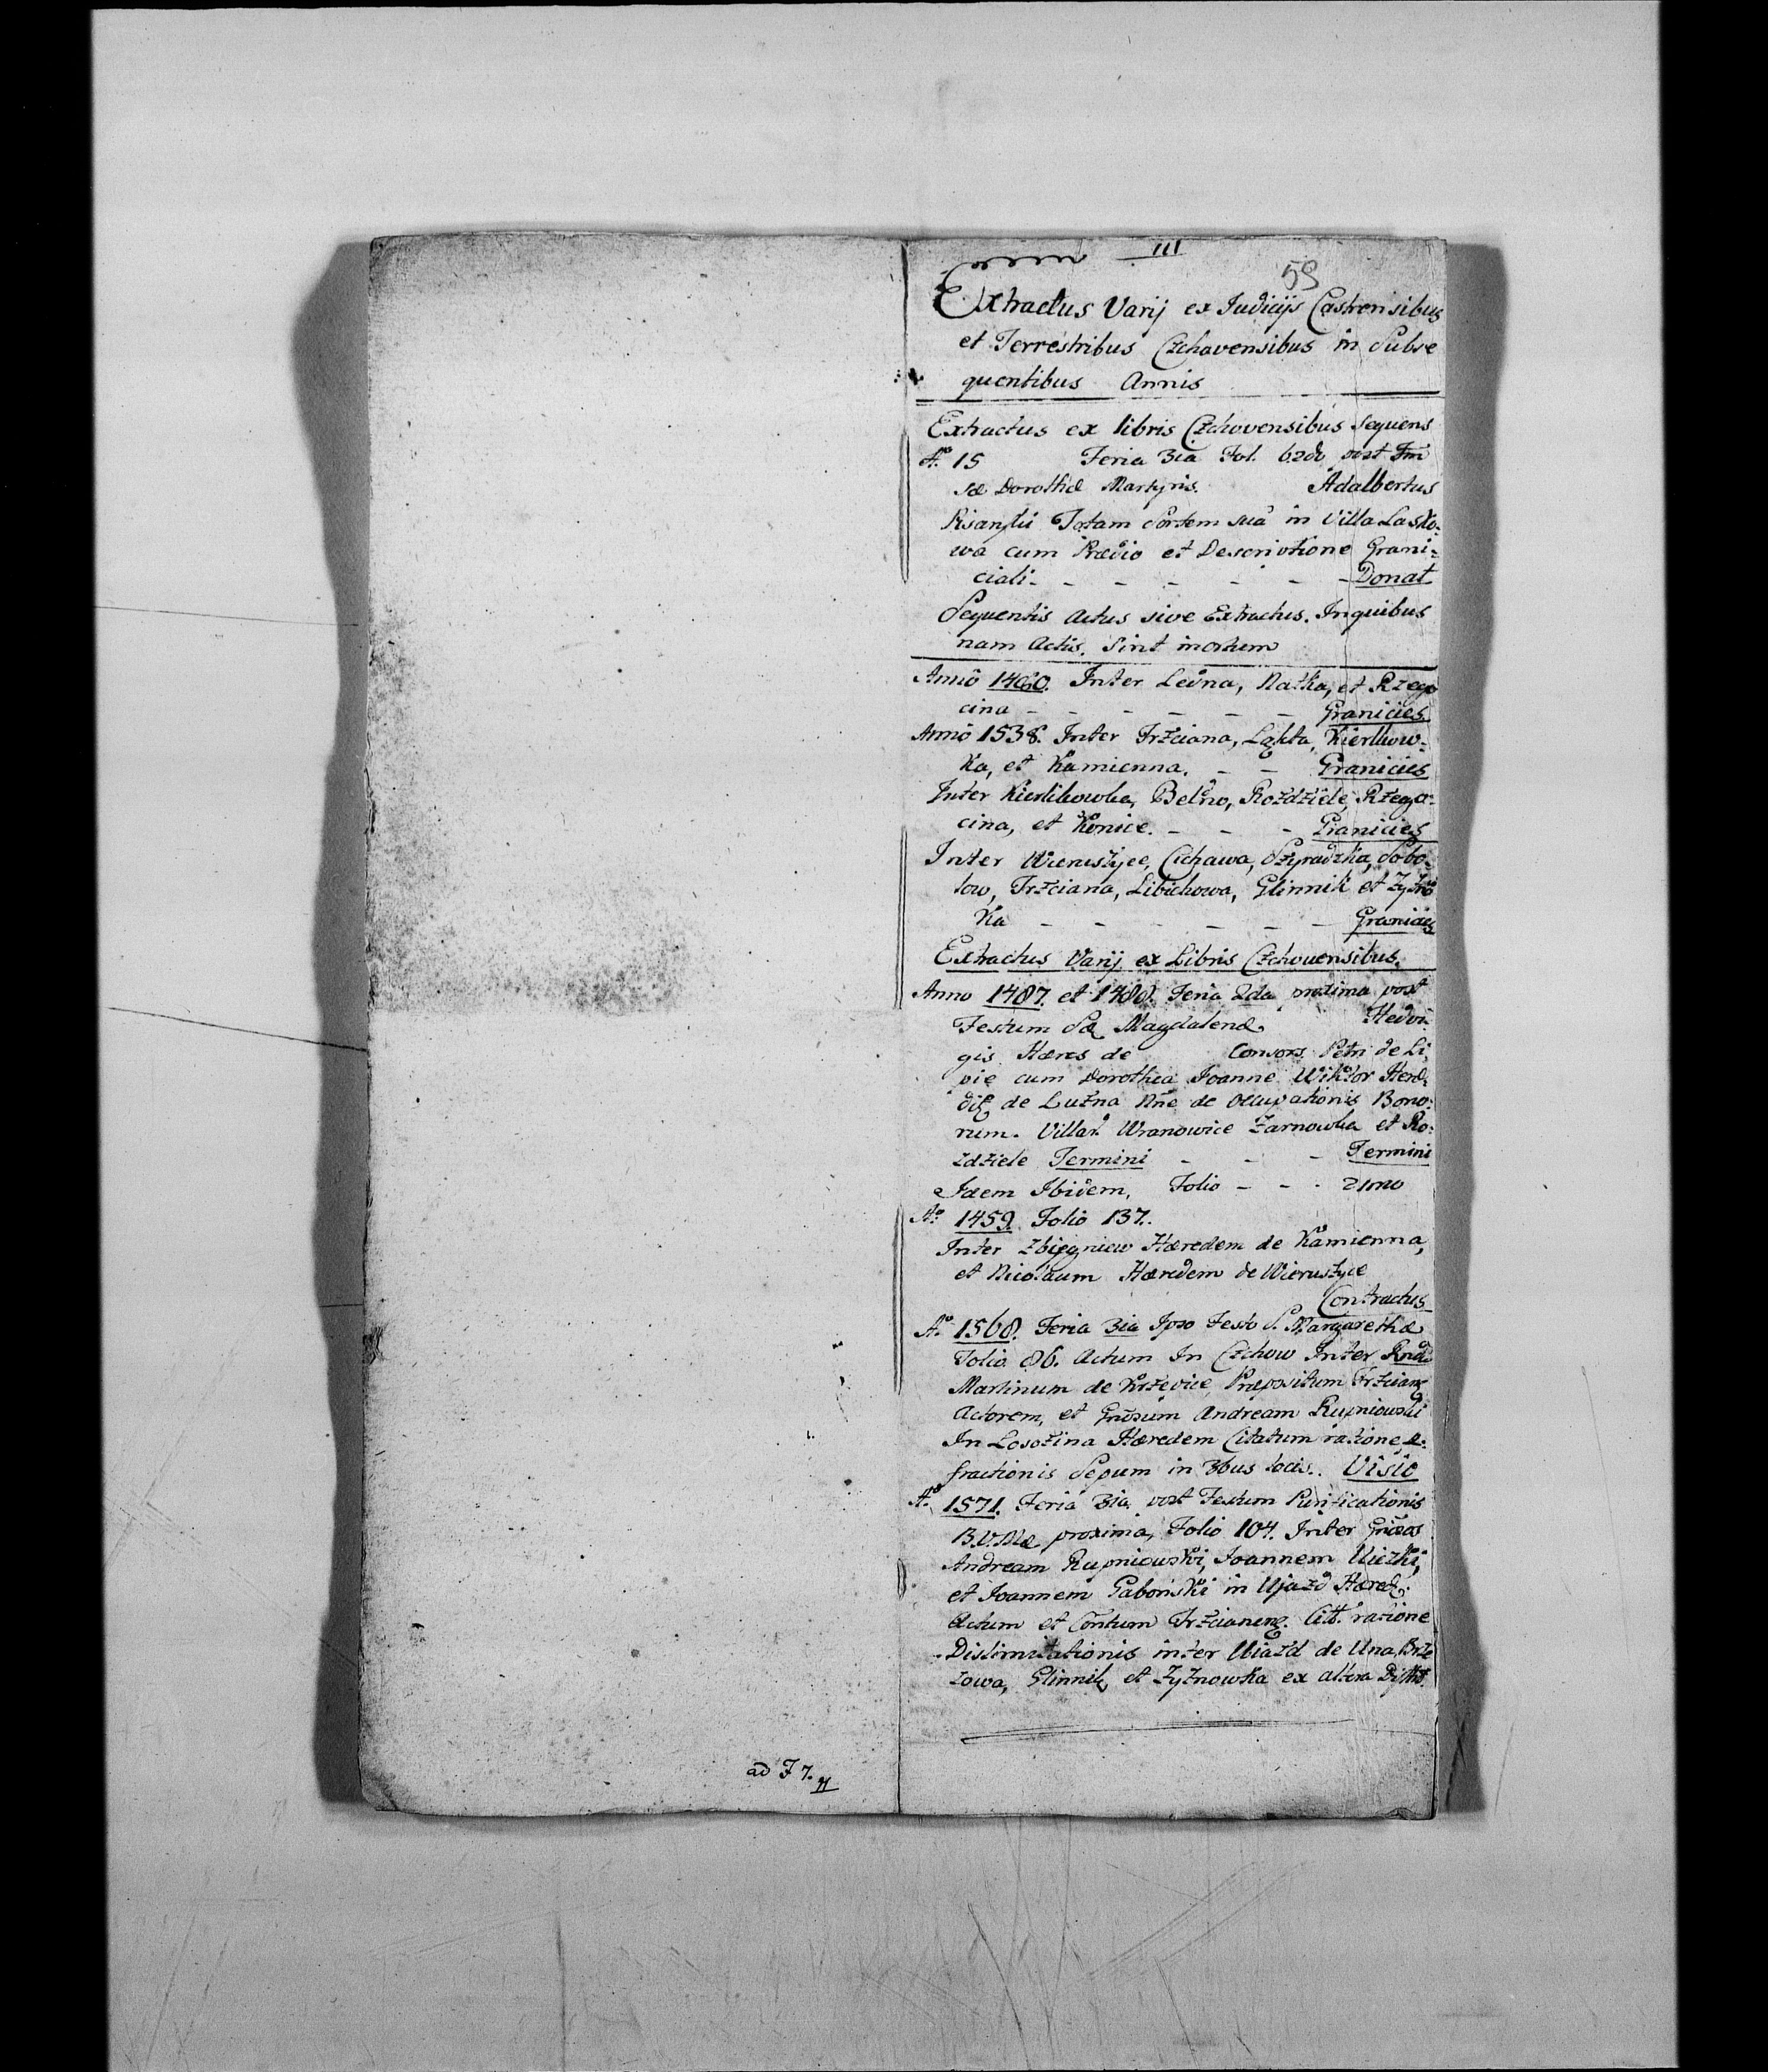 111
59
Extractus Varij ex Judicijs Castrensibus
et Terrestribus Czchovensibus in Subse
quentibus Annis
Extractus ex libris Czchovensibus Sequens
Aº. 15 Feria 3ia Fol. 62do post Fm
sæ Dorothæ Martyris. Adalbertus
Totam Sortem suã in Villa Lasko-
wa cum Prædio et Descriptione Grani-
ciali - - - - - - Donat
Sequentis actus sive Extractus. In quibus
nam actis. Sint
Annô 1460. Inter Leðna, Natka, et Rzego
cina - - - - - - Granicies
Annô 1538. Inter Trzciana, Ląkta, Kierlkow-
ka, et Kamienna. - - Granicies
Inter Kierlikowka, Bełno, Rozdziele, Rzego-
cina, et Konice. - - - Granicies
Inter Wieruszyce, Cichawa, Sobo-
low, Trzciana, Libichowa, Glinnik et Zyzno
ka - - - - - - Granicies
Extractus Varij ex Libris Czchouensibus.
Anno 1487. et 1488. Feria 2da proxima post
Festum Sæ Magdalenæ. Hedvi-
gis Hæres de Consors Petri de Li
pie cum Dorothea Joanne Wiktor Hered.
de Luzna Nñe de Occupationis Bono-
rum. Villar. Wranowice Zarnowka et Ro-
zdziele Termini - - - Termini
Idem Ibidem, Folio - - - 21mo
Aº. 1459. Folio 137.
Inter Zbigniew Hæredem de Kamienna,
et Nicolaum Hæredem de Wieruszyce
Contractus
Aº. 1568. Feria 3ia Ipso Festo S. Margarethæ
Folio 86. Actum In Czchow Inter Rnd.
Martinum de Præpositum Trzcianę
Actorem, et Gnõsum Andream Rupniowski
In Łosozina Hæredem Citatum ratione e-
fractionis Sepum in 3bus locis. Visio
Aº. 1571. Feria 3ia post Festum Purificationis
B.V.Mæ proxima, Folio 104. Inter Gnõsos
Andream Rupniowski, Joannem
et Joannem Gaboński in Ujazd Hæred.
Actum et Cõntum Trzcianeñ. Citt. ratione
Dislimitationis inter Uiazd de Una, Brze
zowa, Glinnik, et Zyznowka ex altera
ad F 7.